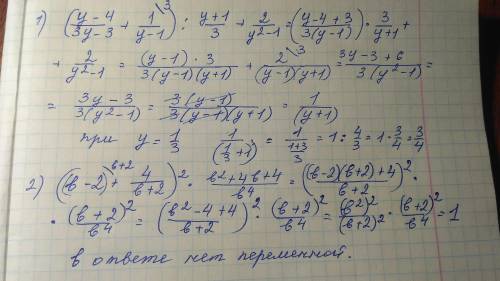 1) ((y-4)/(3y-3) + 1^{\3}/(y-1)) : (y+1)/3 + 2/(y²-1) = ((y-4+3)/(3(y-1))) · 3/(y+1) +
+ 2/(y²-1) = ((y-1)·3)/(3(y-1)(y+1)) + 2^{\3}/((y-1)(y+1)) = (3y-3+6)/(3(y²-1)) =
= (3y-3)/(3(y²-1)) = (3(y-1))/(3(y-1)(y+1)) = 1/(y+1)
при y = 1/3 1/(1/3+1) = 1/((1+3)/3) = 1 : 4/3 = 1 · 3/4 = 3/4
2) ((b-2)^{\b+2} + 4/(b+2))² · (b²+4b+4)/b⁴ = (((b-2)(b+2)+4)/(b+2))² ·
· (b+2)²/b⁴ = ((b²-4+4)/(b+2))² · (b+2)²/b⁴ = (b²)²/(b+2)² · (b+2)²/b⁴ = 1
в ответе нет переменной.